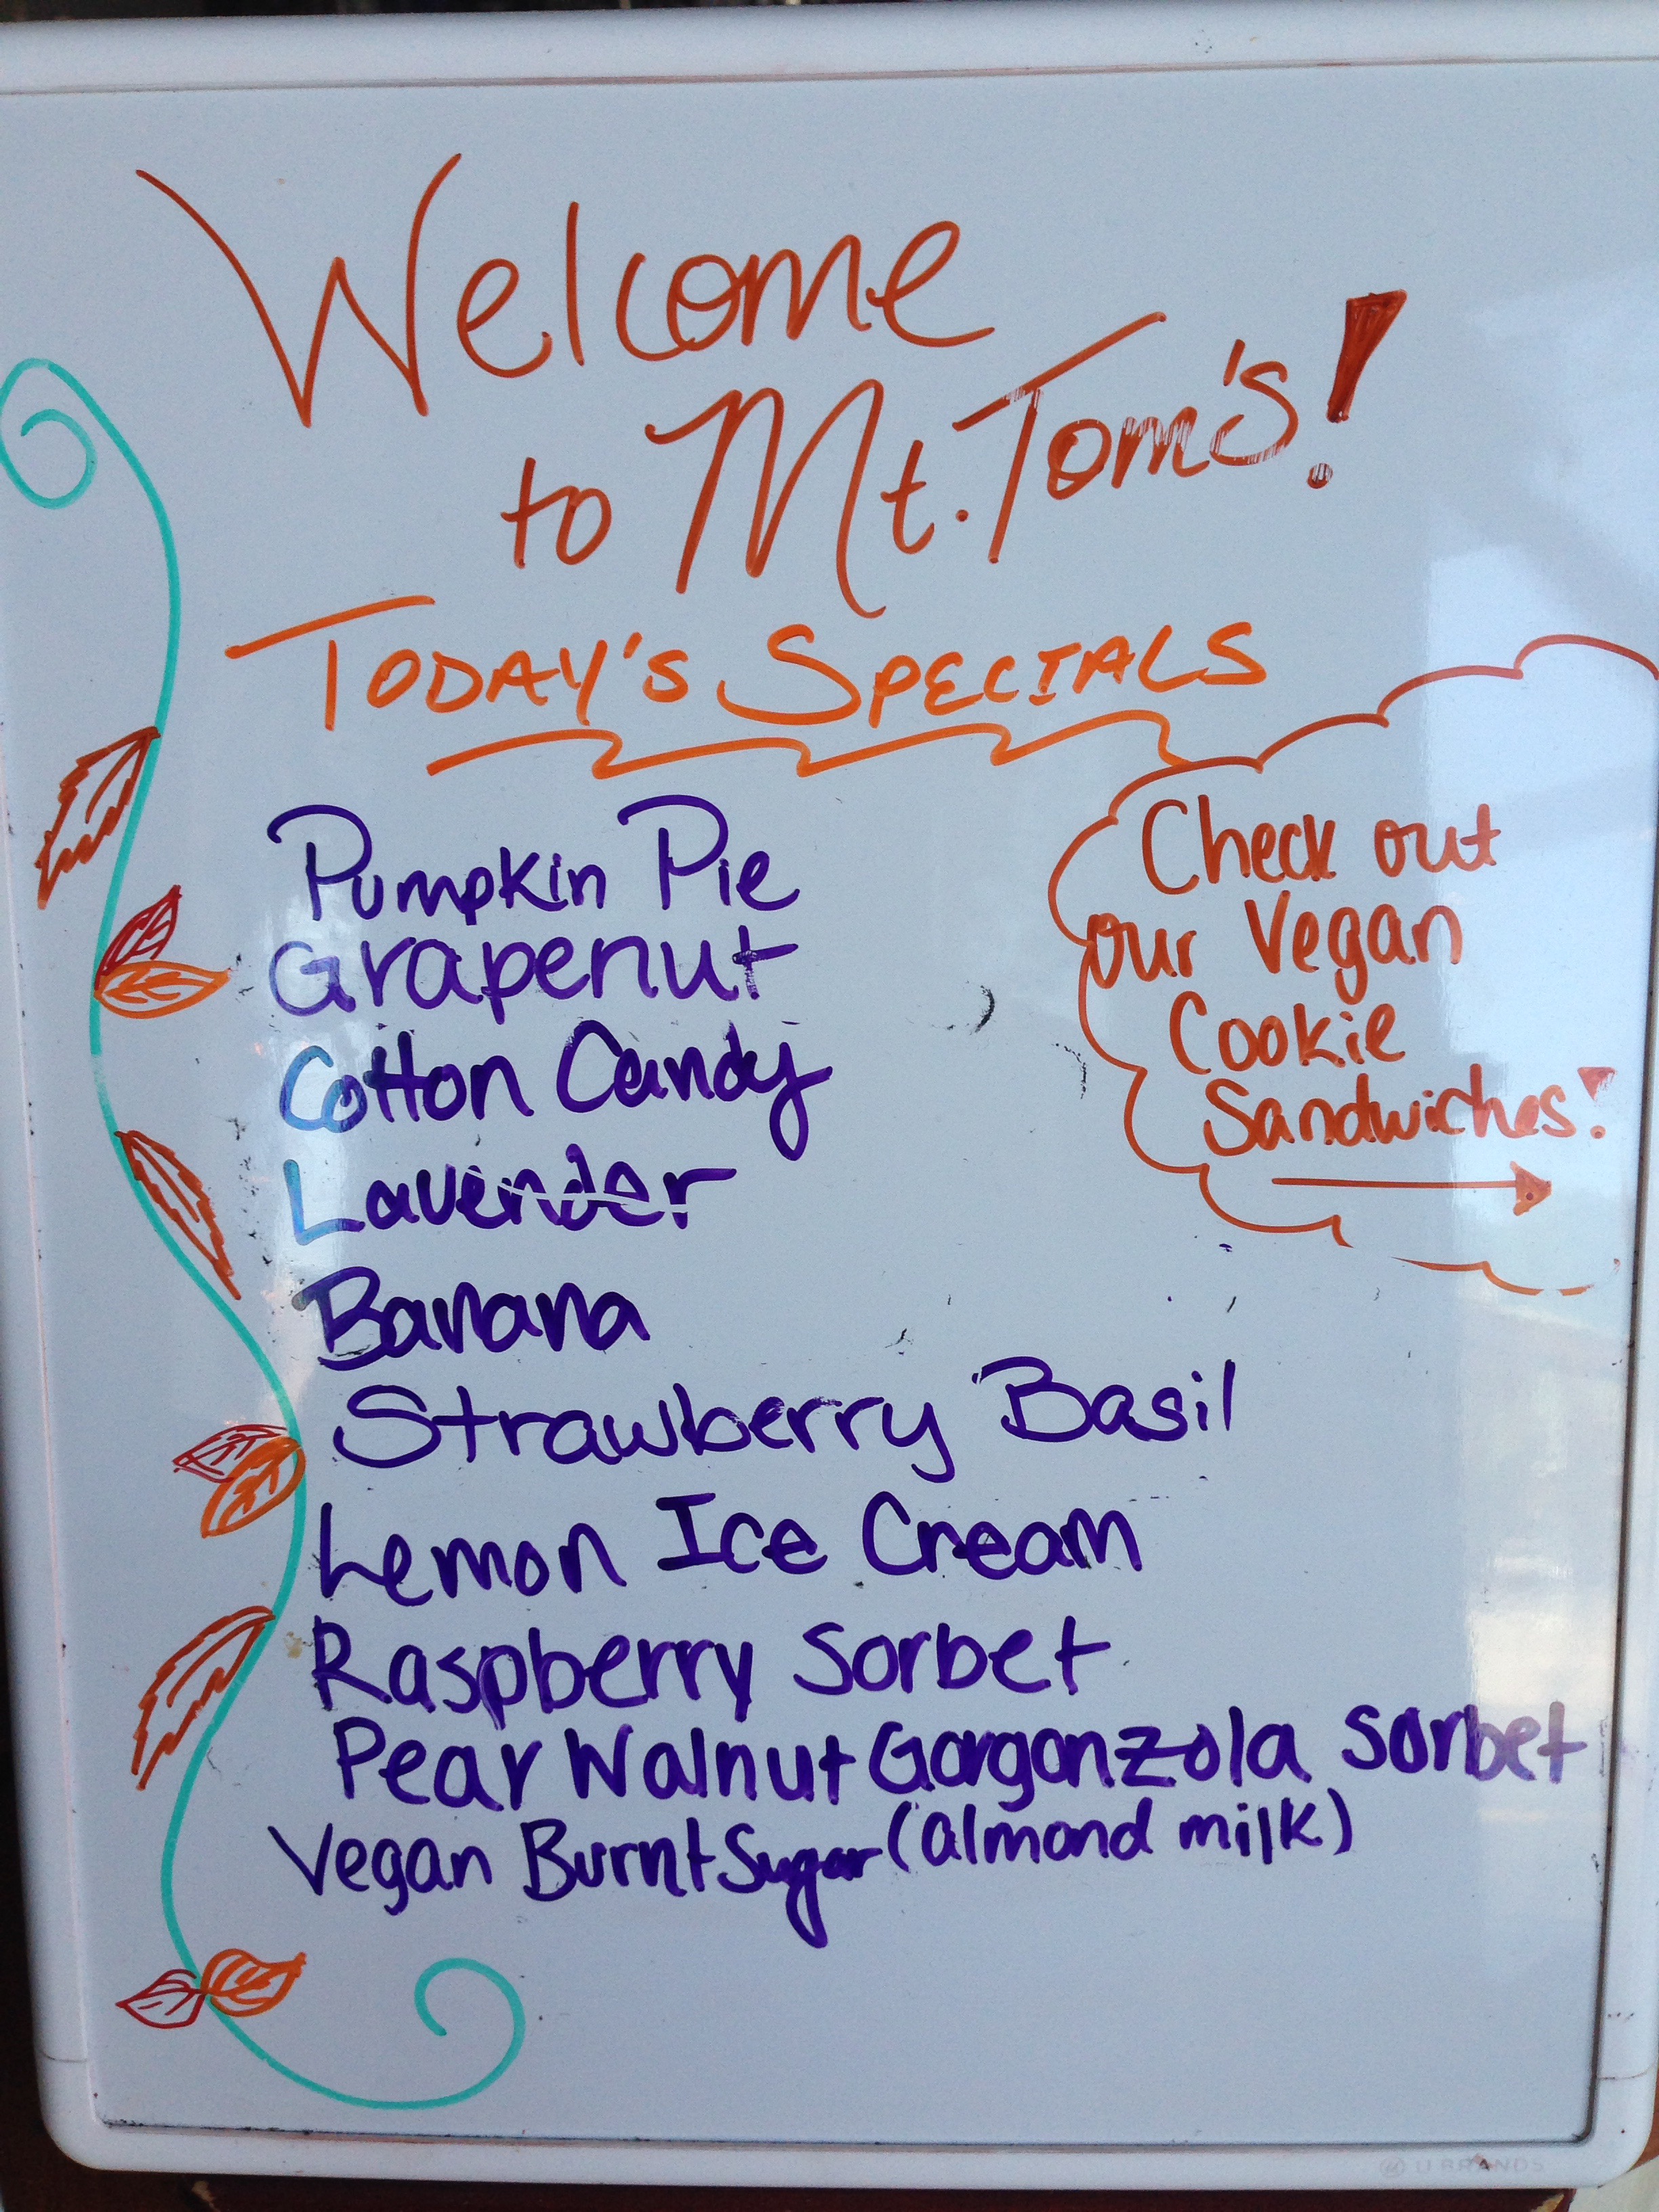 Welcome
to Mt. Tom's!
TODAY'S SPECIALS
Pumpkin Pie
Grapenut
Cotton Candy
Lavender
Banana
Strawberry Basil
Lemon Ice Cream
Raspberry Sorbet
Pear Walnut Gorgonzola Sorbet
Vegan Burnt Sugar (almond milk)
Check out
our Vegan
Cookie
Sandwiches!
U BRANDS